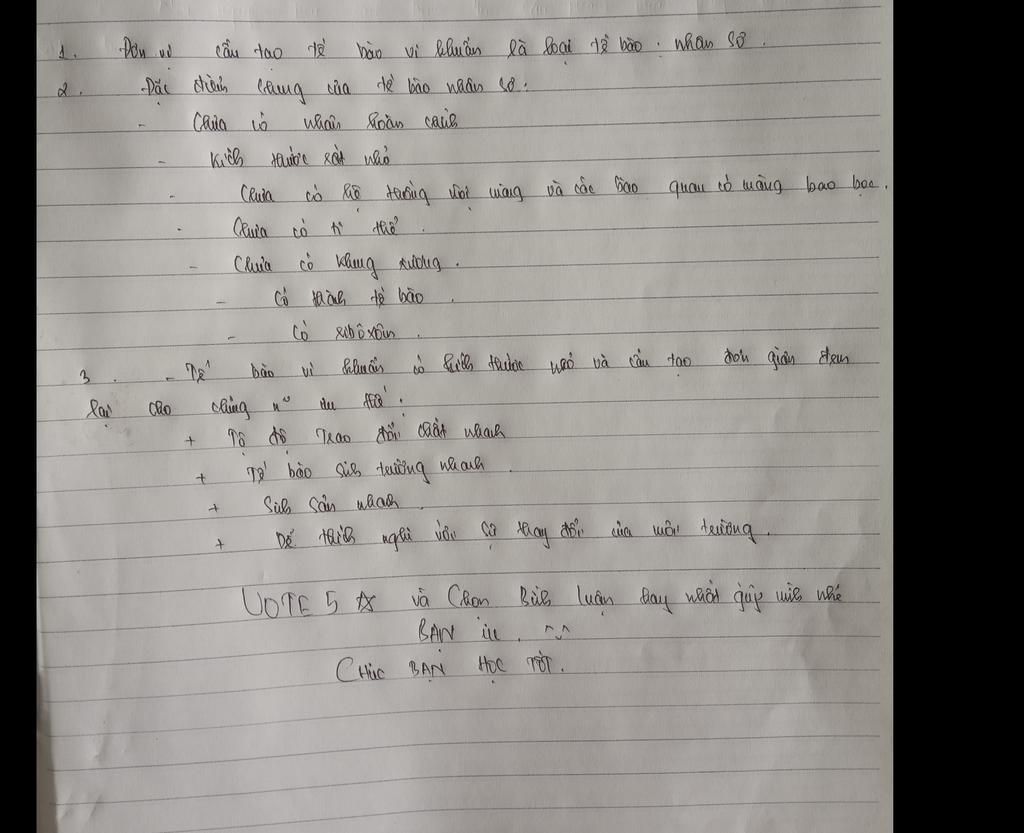 1. Đơn vị cấu tạo tế bào vi khuẩn là loại tế bào nhân sơ.
2. Đặc điểm chung của tế bào nhân sơ:
- Chưa có nhân hoàn chỉnh
- Kích thước rất nhỏ
- Chưa có hệ thống nội màng và các bào quan có màng bao bọc.
- Chưa có ti thể.
- Chưa có khung xương.
- Có thành tế bào.
- Có ribôxôm.
3. - Tế bào vi khuẩn có kích thước nhỏ và cấu tạo đơn giản đem
lại cho chúng ưu thế:
+ Tộ độ Trao đổi chất nhanh
+ Tế bào sinh trưởng nhanh.
+ Sinh sản nhanh.
+ Dễ thích nghi với sự thay đổi của môi trường.
VOTE 5 ☆ và Chọn Bình luận hay nhất giúp mình nhé
BẠN iu. ^^
CHúc BẠN HỌC TỐT.